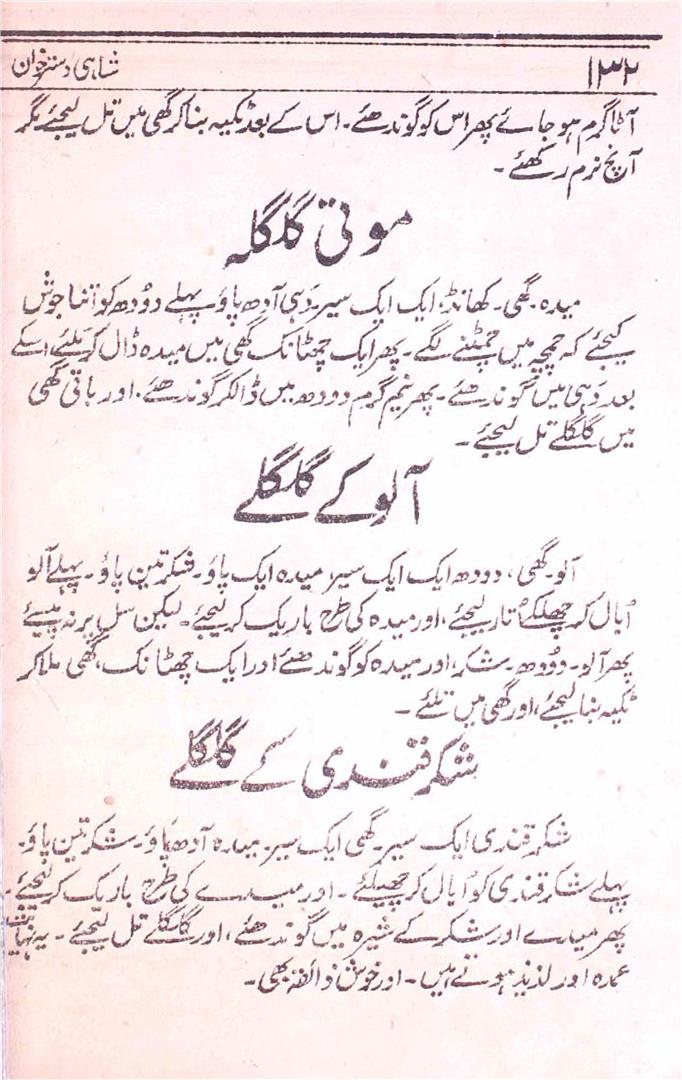 ۱۳۲ شاہی دسترخوان
آٹا گرم ہو جائے پھر اس کو گوندھئے۔ اس کے بعد ٹکیہ بنا کر گھی میں تل لیجئے مگر
آنچ نرم رکھئے۔
موتی گلگلہ
میدہ۔ گھی۔ کھانڈ، ایک ایک سیر۔ دَہی آدھ پاؤ۔ پہلے دوُدھ کو اتنا جوش
کیجئے کہ چمچہ میں چمٹنے لگے۔ پھر ایک چھٹانک گھی میں میدہ ڈال کر مَلئے، اسکے
بعد دَہی میں گوندھئے۔ پھر نیم گرم دودھ میں ڈالکر گوندھئے۔ اور باقی گھی
میں گلگلے تل لیجئے۔
آلو کے گلگلے
آلو۔ گھی، دودھ ایک ایک سیر میدہ ایک پاؤ۔ شکر تین پاؤ۔ پہلے آلو
اُبال کر چھلکے اُتار لیجئے، اور میدہ کی طرح باریک کر لیجئے۔ لیکن سل پر نہ پیسئے
پھر آلو۔ دوُدھ۔ شکر، اور میدہ کو گوندھئے اور ایک چھٹانک، گھی ملا کر
ٹکیہ بنا لیجئے، اور گھی میں تلئے۔
شکر قندی کے گلگلے
شکر قندی ایک سیر۔ گھی ایک سیر۔ میدہ آدھ پاؤ۔ شکر تین پاؤ۔
پہلے شکر قندی کو اُبال کر چھیلئے۔ اور میدے کی طرح باریک کر لیجئے۔
پھر میدے اور شکر کے شیرہ میں گوندھئے، اور گلگلے تل لیجئے۔ یہ نہایت
عمدہ اور لذیذ ہوتے ہیں۔ اور خوش ذائقہ بھی۔